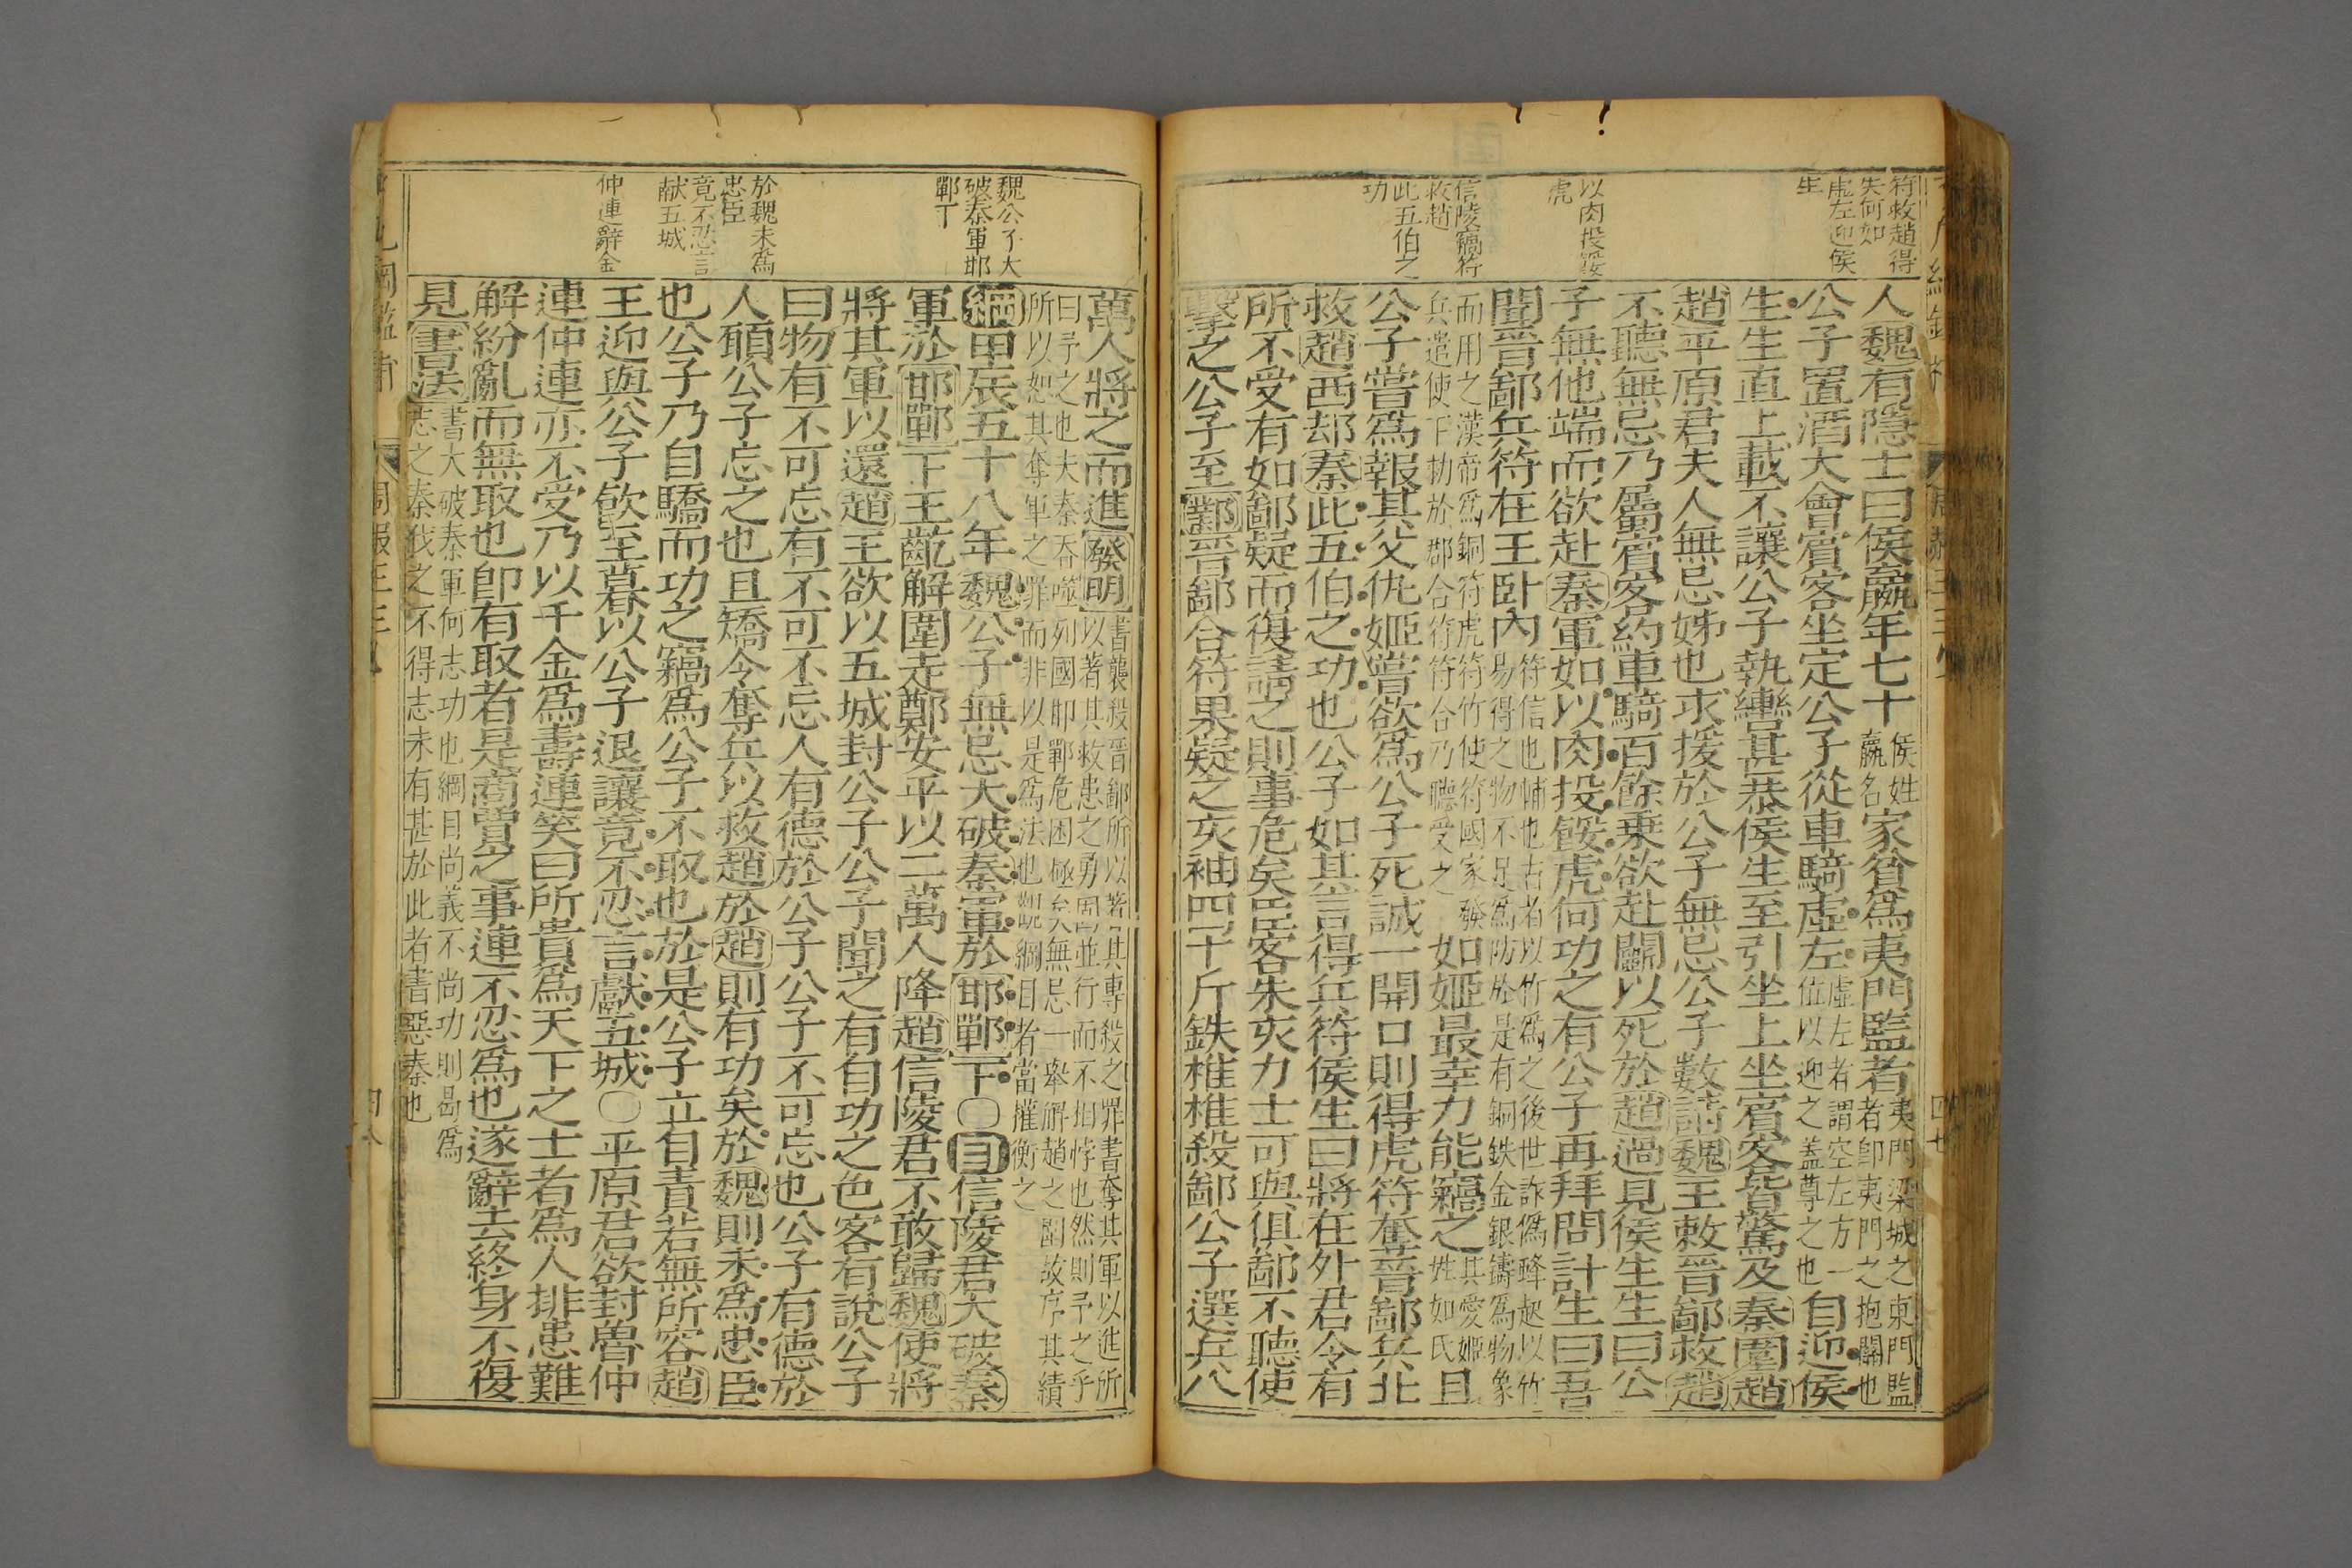 符救趙得
失何如
虛左迎侯
生
以肉投餒
虎
信陵竊符
救趙
此五伯之
功
人魏有隱士曰侯嬴年七十侯姓嬴名家貧爲夷門監者夷門梁城之東門監者卽夷門之抱關也
公子置酒大會賓客坐定公子從車騎虛左虛左者謂空左方一位以迎之蓋尊之也自迎侯
生生直上載不讓公子執轡甚恭侯生至引坐上坐賓客皆驚及秦圍趙
趙平原君夫人無忌姊也求援於公子無忌公子數請魏王敕晉鄙救趙
不聽無忌乃屬賓客約車騎百餘乘欲赴鬭以死於趙過見侯生生曰公
子無他端而欲赴秦軍如以肉投餒虎何功之有公子再拜問計生曰吾
聞晉鄙兵符在王卧內符信也輔也古者以竹爲之後世詐僞蜂起以竹易得之物不足爲防於是有銅鉄金銀鑄爲物象
而用之漢帝爲銅符虎符竹使符國家發兵遣使下劾於郡合符符合乃聽受之如姬最幸力能竊之其愛姬姓如氏且
公子嘗爲報其父仇姬嘗欲爲公子死誠一開口則得虎符奪晉鄙兵北
救趙西却秦此五伯之功也公子如其言得兵符侯生曰將在外君令有
所不受有如鄙疑而復請之則事危矣臣客朱亥力士可與俱鄙不聽使
擊之公子至鄴晉鄙合符果疑之亥袖四十斤鉄椎椎殺鄙公子選兵八
魏公子大
破秦軍邯
鄲下
於魏未爲
忠臣
竟不忍言
献五城
仲連辭金
萬人將之而進發明書襲殺晉鄙所以著其專殺之罪書奪其軍以進所以著其救患之勇固並行而不相悖也然則予之乎
曰予之也夫秦吞噬列國邯鄲危困極矣無忌一舉解趙之圍故序其績所以恕其奪軍之罪而非以是爲法也觀綱目者當權衡之
綱甲辰五十八年魏公子無忌大破秦軍於邯鄲下〇目信陵君大破秦
軍於邯鄲下王齕解圍走鄭安平以二萬人降趙信陵君不敢歸魏使將
將其軍以還趙王欲以五城封公子公子聞之有自功之色客有說公子
曰物有不可忘有不可不忘人有德於公子公子不可忘也公子有德於
人頭公子忘之也且矯令奪兵以救趙於趙則有功矣於魏則未爲忠臣
也公子乃自驕而功之竊爲公子不取也於是公子立自責若無所容趙
王迎與公子飲至暮以公子退讓竟不忍言獻五城〇平原君欲封魯仲
連仲連亦不受乃以千金爲壽連笑曰所貴爲天下之士者爲人排患難
解紛亂而無取也卽有取者是商賈之事連不忍爲也遂辭去終身不復
見書法書大破秦軍何志功也綱目尚義不尚功則曷爲志之秦伐之不得志未有甚於此者書惡秦也